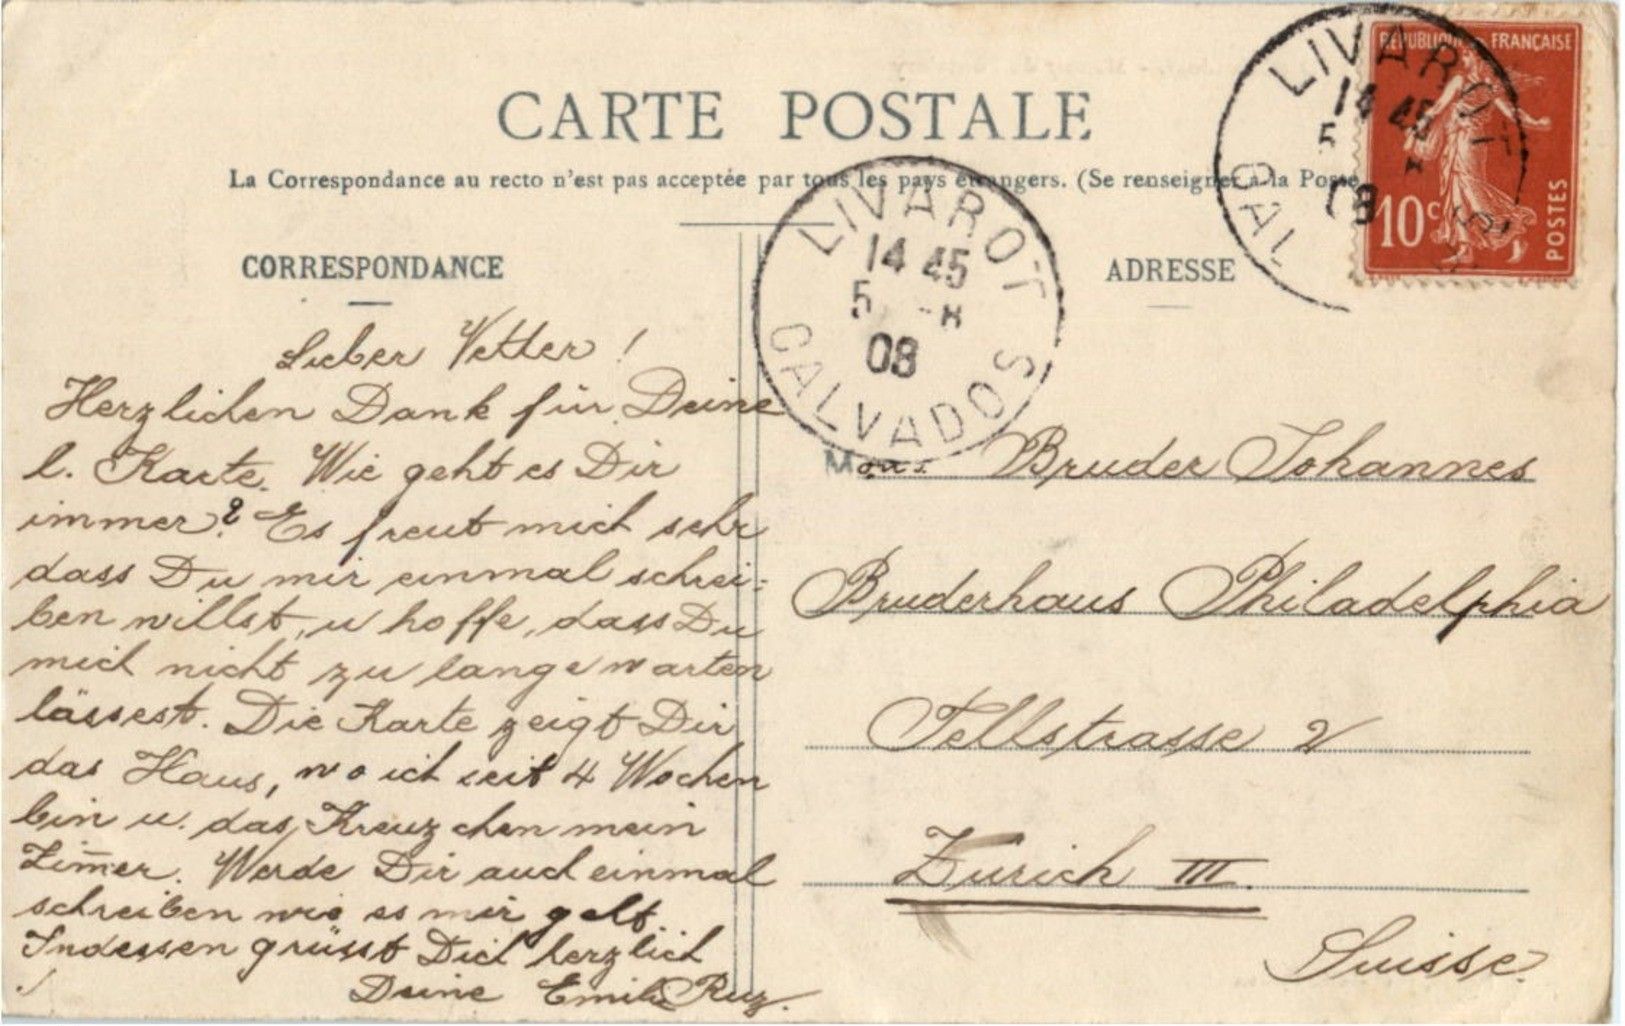 CARTE POSTALE
La Correspondance au recto n'est pas acceptée par tous les pays étrangers. (Se renseigner à la Poste
CORRESPONDANCE
Lieber Vetter!
Herzlichen Dank für Deine
l. Karte. Wie geht es Dir
immer? Es freut mich sehr
dass Du mir einmal schrei-
ben willst, u hoffe, dass Du
mich nicht zu lange warten
lässest. Die Karte zeigt Dir
das Haus, wo ich seit 4 Wochen
bin u. das Kreuzchen mein
Zim̄er. Werde Dir auch einmal
schreiben wie es mir geht.
Indessen grüsst Dich herzlich
Deine Emilie
LIVAROT
14 45
5 -8
08
CALVADOS
ADRESSE
Bruder Johannes
Bruderhaus Philadelphia
Tellstrasse 2
Zürich III.
Suisse.
LIVAROT
14 45
5
08
CAL
REPUBLIQUE FRANÇAISE
10c
POSTES